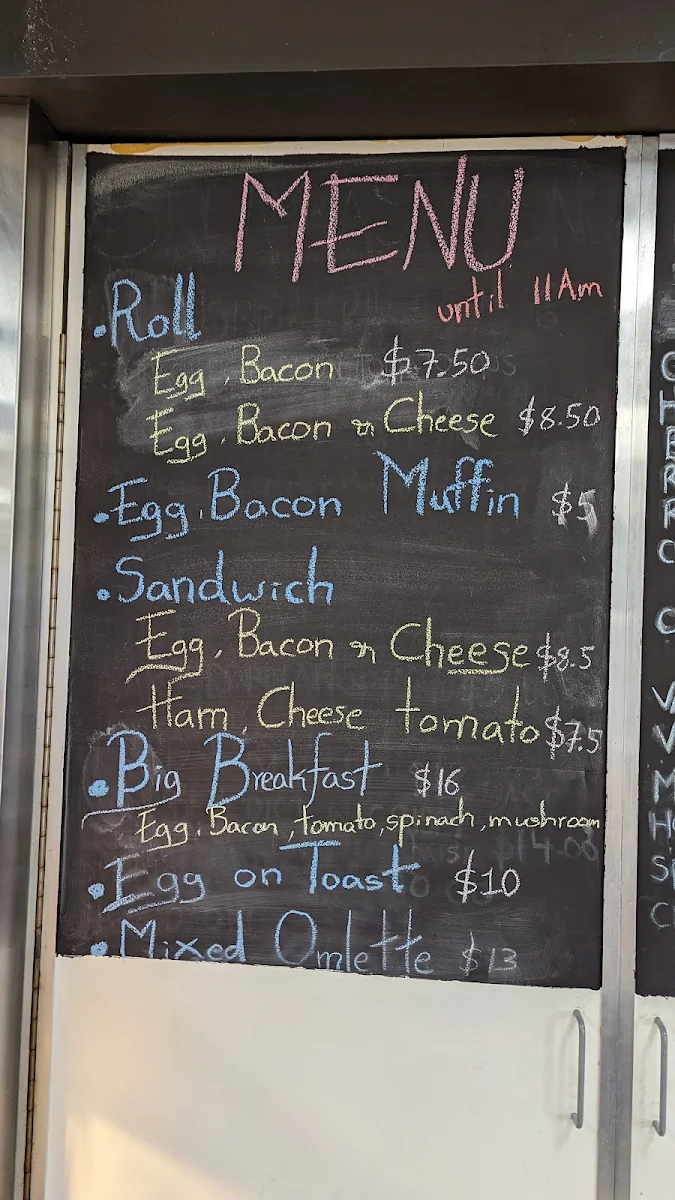 MENU
until 11Am
• Roll
Egg, Bacon $7.50
Egg, Bacon n Cheese $8.50
• Egg, Bacon Muffin $5
• Sandwich
Egg, Bacon n Cheese $8.5
Ham, Cheese tomato $7.5
• Big Breakfast $16
Egg, Bacon, tomato, spinach, mushroom
• Egg on Toast $10
• Mixed Omlette $13